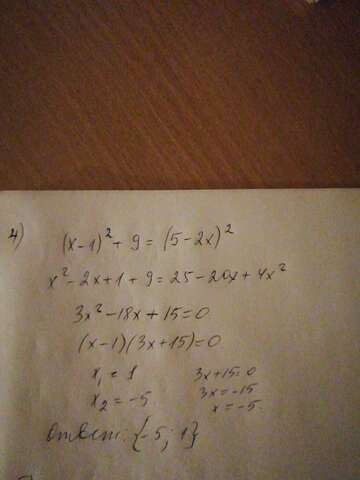 4) (x-1)² + 9 = (5-2x)²
x² - 2x + 1 + 9 = 25 - 20x + 4x²
3x² - 18x + 15 = 0
(x-1)(3x+15) = 0
x₁ = 1
x₂ = -5
3x+15=0
3x = -15
x = -5.
Ответ: {-5; 1}